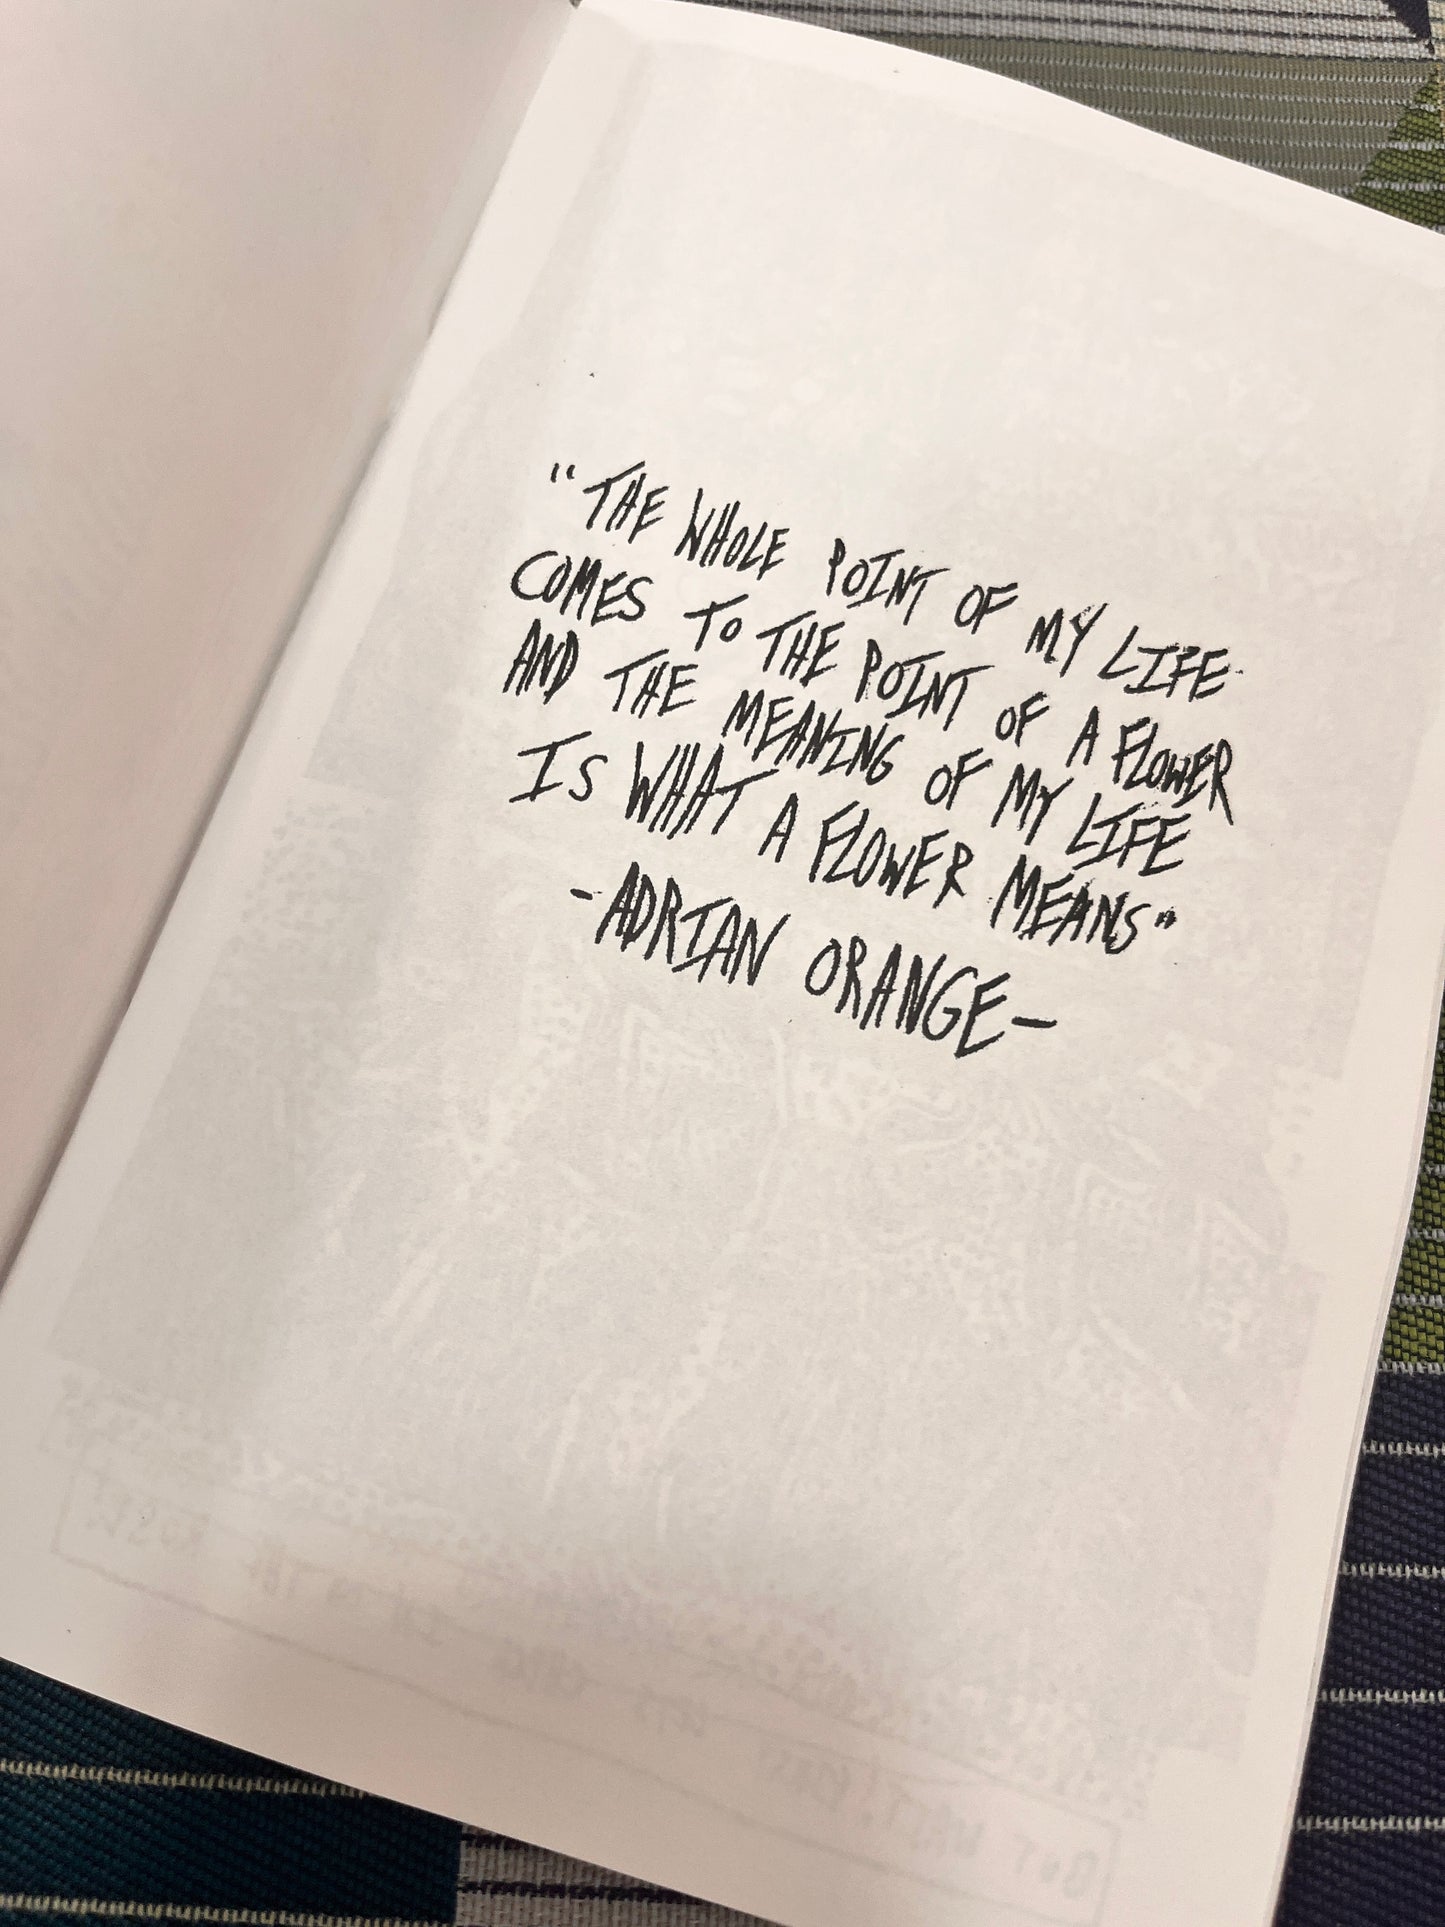 "THE WHOLE POINT OF MY LIFE
COMES TO THE POINT OF A FLOWER
AND THE MEANING OF MY LIFE
IS WHAT A FLOWER MEANS"
-ADRIAN ORANGE-